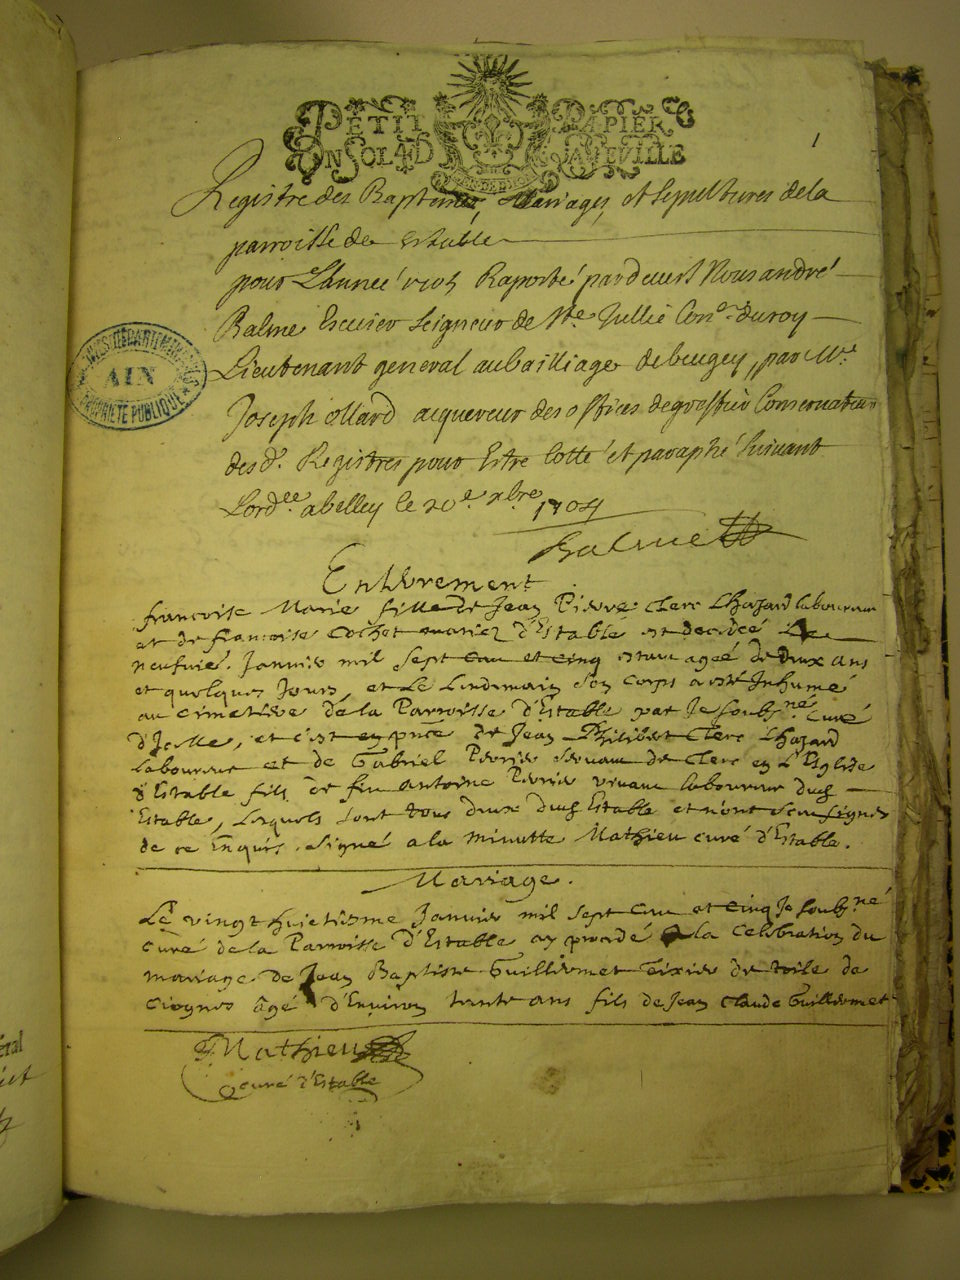 PETIT PAPIER
UN SOL 4 D LA FEUILLE
1
Registre des Baptemes, Mariages, et sepultures de la
parroisse de Estable
pour L'année 1705 Raporté pardevant Nous andré
Balme Escuier Seigneur de Ste Jullie Conr. du roy
Lieutenant general au bailliage de beugey, par Me
Joseph ollard acquereur des offices de greffier Conservateur
des d. Registres pour Estre Cotté et paraphé suivant
Lordce a belley le 20e xbre 1704
Balme
ARCHIVES DEPARTEMENTALES
AIN
PROPRIETE PUBLIQUE
Enterrement
francoise Marie fille de Jean Pierre Clerc Lhazard laboureur
et de francoise Cochet mariez d'Estable est decedée Le
neufvie. Janvier mil sept cen et cinq estant ageé de deux ans
et quelques Jours, et Le Lendemain son corps a esté Inhumé
au cimetiere de la Parroisse d'Estable par Je soubsné curé
d'Icelle, et c'est en pnce de Jean Philibert Clerc Lhazard
Laboureur et de Gabriel servant de Clerc en L'Eglise
d'Estable fils de feu Antoine vivant laboureur dud
Estable, Lesquels sont tous deux dud Estable et n'ont sceu signer
de ce Enquis. signé a la minutte Mathieu curé d'Estable.
Mariage.
Le vingt huictiesme Janvier mil sept cen et cinq Je soubsné
curé de la Parroisse d'Estable ay procedé a la celebration du
mariage de Jean Baptiste Guilliermet tixier de toile de
agé d'Environ trante ans fils de Jean Claude Guilliermet
Mathieu
curé d'Estable